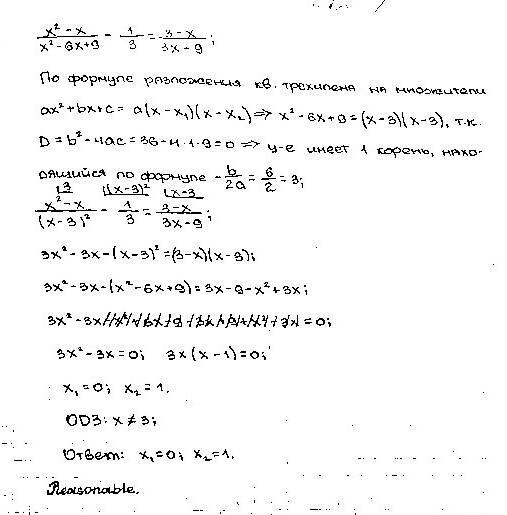 x² - x / x² - 6x + 9 - 1/3 = 3 - x / 3x - 9;
По формуле разложения кв. трехчлена на множители
ax² + bx + c = a(x - x₁)(x - x₂) ⇒ x² - 6x + 9 = (x - 3)(x - 3), т.к.
D = b² - 4ac = 36 - 4 · 1 · 9 = 0 ⇒ у-е имеет 1 корень, нахо-
дящийся по формуле - b/2a = 6/2 = 3;
⌊3 ⌊(x - 3)² ⌊x - 3
x² - x / (x - 3)² - 1/3 = 3 - x / 3x - 9;
3x² - 3x - (x - 3)² = (3 - x)(x - 3);
3x² - 3x - (x² - 6x + 9) = 3x - 9 - x² + 3x;
3x² - 3x - x² + 6x - 9 - 3x + 9 + x² - 3x = 0;
3x² - 3x = 0; 3x(x - 1) = 0;
x₁ = 0; x₂ = 1.
ОДЗ: x ≠ 3;
Ответ: x₁ = 0; x₂ = 1.
Reasonable.